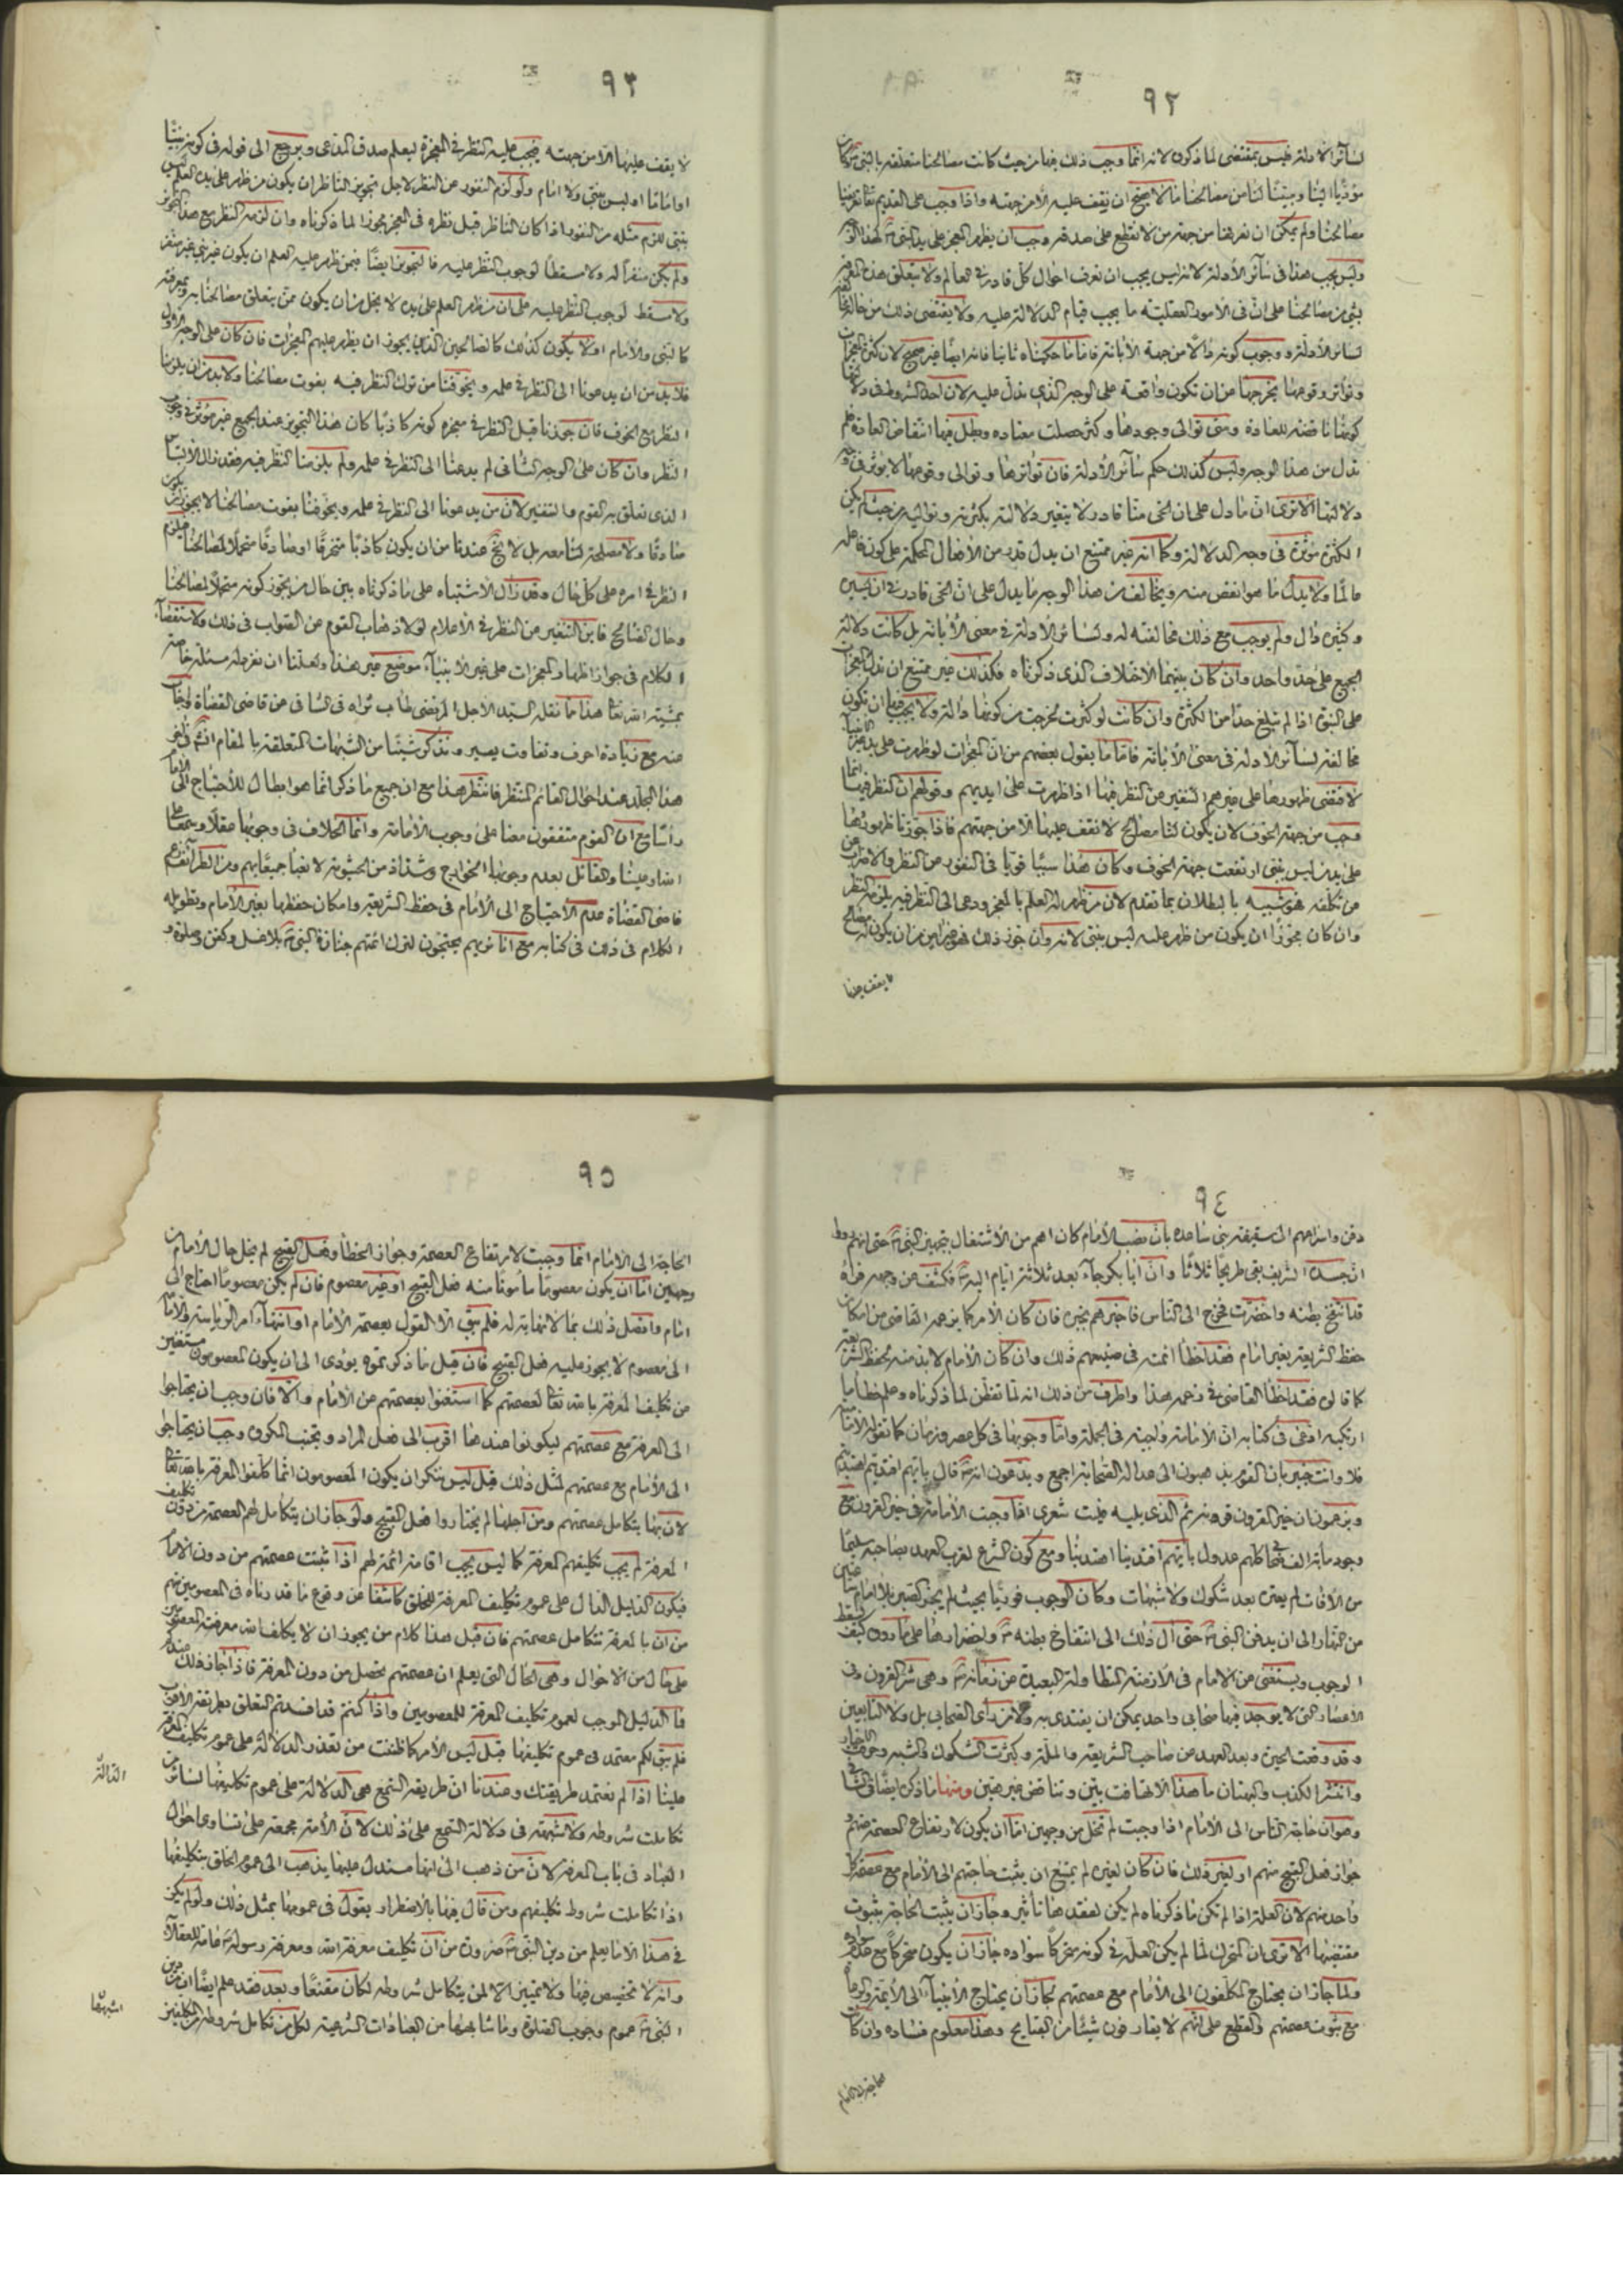 ٩٢
لسائر الادلة فليس بمقتضى لما ذكروه لانه انما وجب ذلك فيها من حيث كانت مصالحنا متعلقة بالنبى وكان
مؤديا الينا ومبينا لنا من مصالحنا ما لا يصح ان يقف عليه الا من جهته واذا وجب على القديم تعالى تعريفنا
مصالحنا ولم يمكن ان نعرفها من جهة من لا نقطع على صدقه وجب ان يظهر المعجز على يد النبى لهذا الوجه
وليس يجب هذا فى سائر الأدلة لانه ليس يجب ان نعرف احوال كل قادر فى العالم ولا يتعلق هذه المعرفة
بشئ من مصالحنا على ان فى الأمور العقلية ما يجب قيام الدلالة عليه ولا يقتضى ذلك مخالفته
لسائر الأدلة ووجوب كونه دالا من جهة الأبانة فاما ما حكيناه ثانيا فانه ايضا غير صحيح لان كثرة المعجزات
وتواتر وقوعها يخرجها من ان تكون واقعة على الوجه الذى تدل عليه لان احد الشروط فى دلالتها
كونها ناقضة للعادة ومتى توالى وجودها وكثر حصلت معتادة وبطل فيها انتقاض العادة فلم
تدل من هذا الوجه وليس كذلك حكم سائر الأدلة فان تواترها وتوالى وقوعها لا يؤثر فى وجه
دلالتها الا ترى ان ما دل على ان الحى منا قادر لا يتغير دلالته بكثرته وتواليه من حيث لم يكن
الكثرة مؤثرة فى وجه الدلالة وكما انه غير ممتنع ان يدل قدر من الأفعال المحكمة على كون فاعله
عالما ولا يدل ما هو انقص منه ويخالف من هذا الوجه ما يدل على ان الحى قادر فى ان يسير
وكثيره دال ولم يوجب مع ذلك مخالفته له ولسائر الأدلة فى معنى الأبانة بل كانت دلالة
الجميع على حد واحد وان كان بينهما الاختلاف الذى ذكرناه فكذلك غير ممتنع ان تدل المعجزات
على النبوة اذا لم تبلغ حدا من الكثرة وان كانت لو كثرت لخرجت من كونها دالة ولا يجب فيها ان تكون
مخالفة لسائر الأدلة فى معنى الأبانة فاما ما يقول بعضهم من ان المعجزات لو ظهرت على يد غير الأنبياء
لاقتضى ظهورها على غيرهم التنفير عن النظر فيها اذا ظهرت على ايديهم وقولهم ان النظر فيها انما
وجب من جهة الخوف لان يكون لنا مصالح لا نقف عليها الا من جهتهم فاذا جوزنا ظهورها
على يد من ليس بنبى ارتفعت جهة الخوف وكان هذا سببا قويا فى النفور عن النظر والاضراب عن
تكلفه فهو شبيه بالبطلان بما تقدم لان من ظهر له العلم بالمعجز ودعى الى النظر فيه يلزمه النظر
وان كان مجوزا ان يكون من ظهر عليه ليس بنبى لانه وان جوز ذلك فهو غير امن من ان يكون له مصالح
لا يقف عليها
٩٣
لا يقف عليها الا من جهته فيجب عليه النظر فى المعجزة ليعلم صدق المدعى ويرجع الى قوله فى كونه نبيا
او اماما او ليس بنبى ولا امام ولو لزم النفور عن النظر لاجل تجويز الناظر ان يكون من ظهر على يده العلم ليس
بنبى للزم مثله من النفور اذا كان الناظر قبل نظره فى المعجز مجوزا لما ذكرناه وان لزمه النظر مع هذا التجويز
ولم يكن منفرا له ولا مسقطا لوجوب النظر عليه فالتجويز ايضا فيمن ظهر عليه العلم ان يكون غير نبى غير منفر
ولا مسقط لوجوب النظر عليه على ان من ظهر العلم على يده لا يخلو من ان يكون ممن يتعلق مصالحنا به وبمعرفته
كالنبى والأمام او لا يكون كذلك كالصالحين الذين يجوز ان يظهر عليهم المعجزات فان كان على الوجه الأول
فلا بد من ان يدعونا الى النظر فى علمه ويخوفنا من ترك النظر فيه بفوت مصالحنا ولا بد من ان يلزمنا
النظر مع الخوف فان جوزنا قبل النظر فى معجزه كونه كاذبا كان هذا التجويز عند الجميع غير مؤثر فى وجوب
النظر وان كان على الوجه الثانى لم يدعنا الى النظر فى علمه ولم يلزمنا النظر فيه فقد زال الالتباس
الذى تعلق به القوم والتنفير لان من يدعونا الى النظر فى علمه ويخوفنا بفوت مصالحنا لا يجوز ان يكون
صادقا ولا مصلحة لنا معه بل لا يخ عندنا من ان يكون كاذبا متخرقا او صادقا متحملا لمصالحنا فيلزم
النظر فى امره على كل حال وقد زال الأشتباه على ما ذكرناه بين حال من يجوز كونه متحملا لمصالحنا
وحال الصالح فاين التنفير عن النظر فى الأعلام لولا ذهاب القوم عن الصواب فى ذلك ولاستقصاء
الكلام فى جواز اظهار المعجزات على غير الأنبياء موضع غير هذا ولعلنا ان نفرد له مسئلة خاصة
بمشية الله تعالى هذا ما نقله السيد الاجل المرتضى طاب ثراه فى الشافى عن قاضى القضاة واجاب
عنه مع زيادة احرف وتفاوت يسير ونذكر شيئا من الشبهات المتعلقة بالمقام انشاء الله فى
هذا المجلد عند احوال القائم المنتظر فانتظر هذا مع ان جميع ما ذكر انما هو ابطال للأحتياج الى الأمام
راسا مع ان القوم متفقون معنا على وجوب الأمامة وانما الخلاف فى وجوبها عقلا وسمعا
والقائل بعدم وجوبها الخوارج وشذاذ من الحشوية لا نعبأ جميعا بهم ومن الطرائف زعم
قاضى القضاة عدم الأحتياج الى الأمام فى حفظ الشريعة وامكان حفظها بغير الأمام وتطويله
الكلام فى ذلك فى كتابه مع انا نريهم يحتجون لترك ائمتهم جنازة النبى بلا غسل وكفن وصلوة و
٩٤
دفن واسراعهم الى سقيفة بنى ساعدة بان نصب الأمام كان اهم من الأشتغال بتجهيز النبى حتى انهم رووا
ان جسده الشريف بقى طريحا ثلاثا وان ابا بكر جاء بعد ثلاثة ايام اليه فكشف عن وجهه فراه
قد انتفخ بطنه واخضرت فخرج الى الناس فاخبرهم بخبره فان كان الأمر كما يزعمه القاضى من امكان
حفظ الشريعة بغير امام فقد اخطأ ائمته فى صنيعهم ذلك وان كان الأمام لا بد منه لحفظ الشريعة
كما قالوه فقد اخطأ القاضى فى زعمه هذا واظرف من ذلك انه لما تفطن لما ذكرناه وعلم خطأ ما
ارتكبه ادعى فى كتابه ان الأمامة واجبة فى الجملة واما وجوبها فى كل عصر وزمان كما تقوله الأمامية
فلا وانت خبير بان القوم يذهبون الى عدالة الصحابة اجمع ويدعون انه قال بايهم اقتديتم اهتديتم
ويزعمون ان خير القرون قرنه ثم الذى يليه فليت شعرى اذا وجبت الأمامة فى خير القرون مع
وجود مائة الف صحابى كلهم عدول بايهم اقتدينا اهتدينا ومع كون الشرع لقرب العهد بصاحبه سليما
من الآفات لم يعتره بعد شكوك ولا شبهات وكان الوجوب فوريا بحيث لم يجز لاحد تضييق ساعتين
من النهار الى ان يدفن النبى حتى ال ذلك الى انتفاخ بطنه واخضرارها على ما رووه كيف يسقط
الوجوب ويستغنى عن الامام فى الأزمنة المتطاولة البعيدة عن زمانه وهى شر القرون وفى
الأعصار التى لا يوجد فيها صحابى واحد يمكن ان يقتدى به ولا من راى الصحابى بل ولا التابعين
وقد وقعت الحيرة وبعد العهد عن صاحب الشريعة والملة وكثرت الشكوك والشبه وحرفت الاخبار
وانتشر الكذب والبهتان ما هذا الا تهافت بين وتناقض غير هين ومنها ما ذكره ايضا فى الشافى
وهو ان حاجة الناس الى الأمام اذا وجبت لم تخل من وجهين اما ان يكون لارتفاع العصمة عنهم و
جواز فعل القبيح منهم او لغير ذلك فان كان لغيره لم يمتنع ان يثبت حاجتهم الى الأمام مع عصمة كل
واحد منهم لان العلة اذا لم تكن ما ذكرناه لم يكن لفقدها تأثير وجاز ان يثبت الحاجة بثبوت
مقتضيها الا ترى ان المتحرك لما لم يكن العلة فى كونه متحركا سواده جاز ان يكون متحركا مع عدم سواده
ولما جاز ان يحتاج المكلفون الى الأمام مع عصمتهم لجاز ان يحتاج الأنبياء الى الأئمة والدعاة
مع ثبوت عصمتهم والقطع على انهم لا يقارفون شيئا من القبايح وهذا معلوم فساده وان كانت
الحاجة الى الامام
٩٥
الحاجة الى الامام انما وجبت لارتفاع العصمة وجواز الخطأ وفعل القبيح لم يخل حال الأمام من
وجهين اما ان يكون معصوما مأمونا منه فعل القبيح او غير معصوم فان لم يكن معصوما احتاج الى
امام واتصل ذلك بما لا نهاية له فلم يبق الا القول بعصمة الأمام او انتهاء امر الرياسة والأمامة
الى معصوم لا يجوز عليه فعل القبيح فان قيل ما ذكرتموه يؤدى الى ان يكون المعصومون مستغنين
عن تكليف المعرفة بالله تعالى لعصمتهم كما استغنوا بعصمتهم عن الأمام والا فان وجب ان يحتاجوا
الى المعرفة مع عصمتهم ليكونوا عندها اقرب الى فعل المراد وتجنب المكروه وجب ان يحتاجوا
الى الأمام مع عصمتهم لمثل ذلك قيل ليس ننكر ان يكون المعصومون انما كلفوا المعرفة بالله تعالى
لان بها يتكامل عصمتهم ومن اجلها لم يختاروا فعل القبيح ولو جاز ان يتكامل لهم العصمة من دون تكليف
المعرفة لم يجب تكليفهم المعرفة كما ليس يجب اقامة ائمة لهم اذا ثبتت عصمتهم من دون الأمام
فيكون الدليل الدال على عموم تكليف المعرفة للخلق كاشفا عن وقوع ما قدرناه فى المعصومين منهم
من ان بالمعرفة تتكامل عصمتهم فان قيل هذا كلام من يجوز ان لا يكلف الله معرفته المعصومين
على حال من الاحوال وهى الحال التى يعلم ان عصمتهم تحصل من دون المعرفة فاذا جاز ذلك عندكم
فما الدليل الموجب لعموم تكليف المعرفة للمعصومين واذا كنتم قد افسدتم التعلق بطريقة الأقرب
فلم يبق لكم معتمد فى عموم تكليفها قيل ليس الأمر كما ظننت من تعذر الدلالة على عموم تكليف المعرفة
علينا اذا لم نعتمد طريقتك وعندنا ان طريقة السمع هى الدلالة على عموم تكليفها لسائر من
تكاملت شروطه ولا شبهة فى دلالة السمع على ذلك لان الأمة مجمعة على تساوى احوال
العباد فى باب المعرفة لان من ذهب الى انها مستدل عليها يذهب الى عموم الخلق بتكليفها
اذا تكاملت شروط تكليفهم ومن قال فيها بالاضطرار يقول فى عمومها بمثل ذلك ولو لم يكن
فى هذا الا ما يعلم من دين النبى ضرورة من ان تكليف معرفة الله ومعرفة رسوله عامة للعقلاء
وانه لا تخصيص فيها ولا تمييز الا لمن يتكامل شروطه لكان مقنعا وبعد فقد علم ايضا من دين
النبى عموم وجوب الصلوة وما شابهها من العبادات الشرعية لكل من تكامل شروطه من المكلفين
الدالة
اشبهها